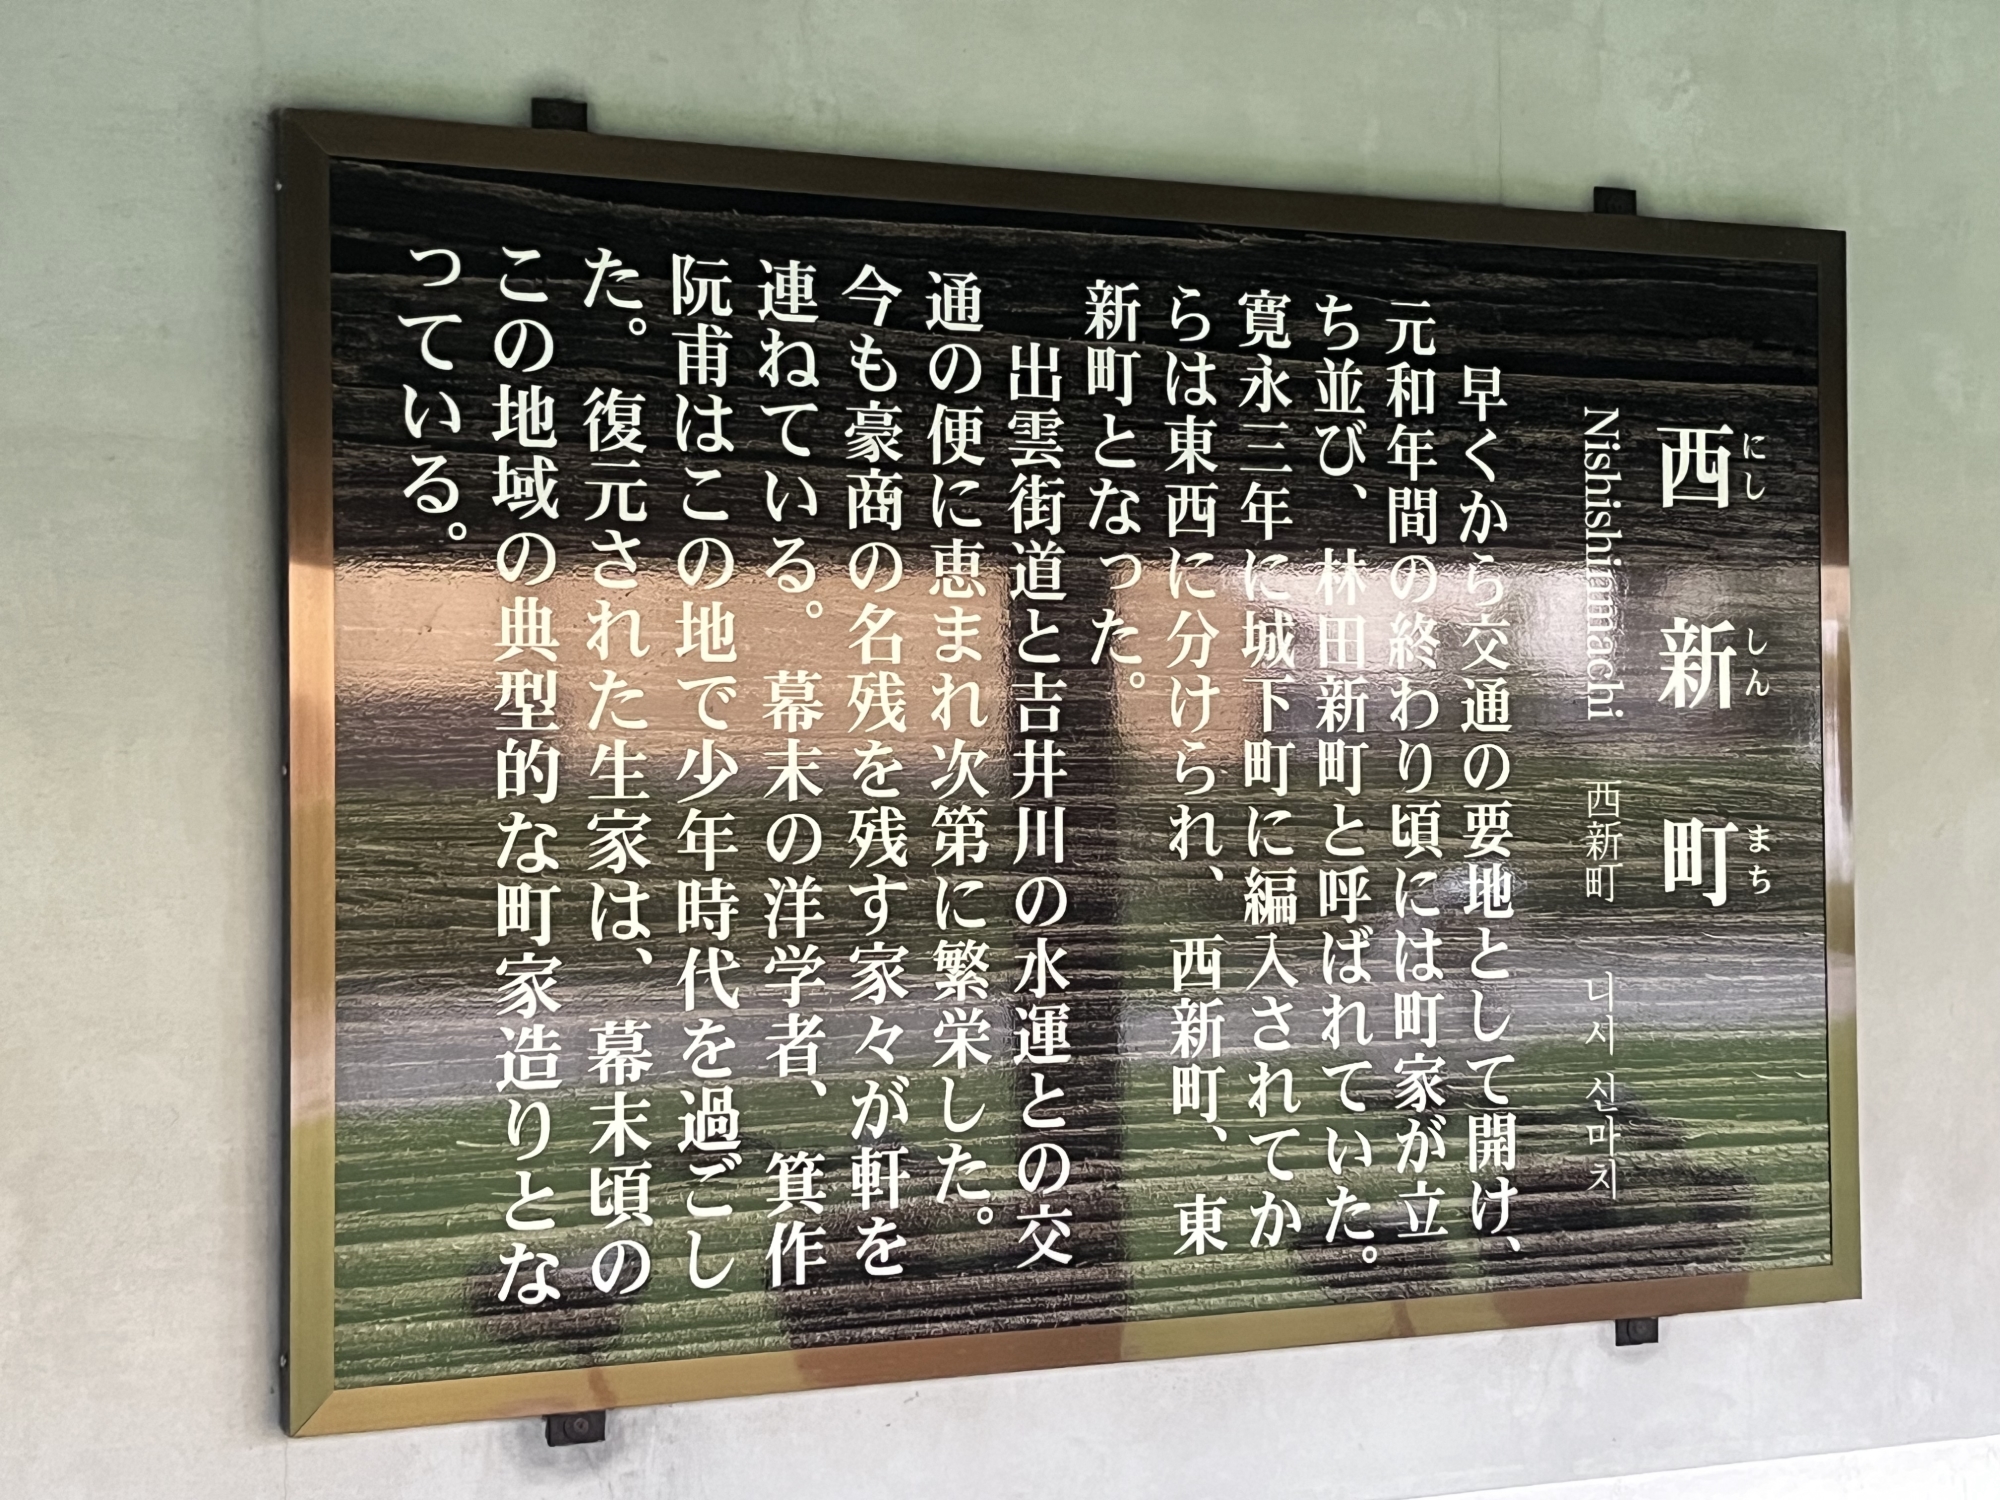 西新町
にししんまち
Nishishinmachi 西新町 니시 신마치
早くから交通の要地として開け、
元和年間の終わり頃には町家が立
ち並び、林田新町と呼ばれていた。
寛永三年に城下町に編入されてか
らは東西に分けられ、西新町、東
新町となった。
出雲街道と吉井川の水運との交
通の便に恵まれ次第に繁栄した。
今も豪商の名残を残す家々が軒を
連ねている。幕末の洋学者、箕作
阮甫はこの地で少年時代を過ごし
た。復元された生家は、幕末頃の
この地域の典型的な町家造りとな
っている。